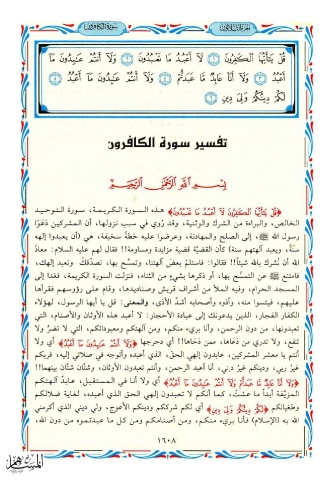 سورة الكافرون
الجزء الثلاثون
قُلْ يَٰٓأَيُّهَا ٱلْكَٰفِرُونَ ١ لَآ أَعْبُدُ مَا تَعْبُدُونَ ٢ وَلَآ أَنتُمْ عَٰبِدُونَ مَآ
أَعْبُدُ ٣ وَلَآ أَنَا۠ عَابِدٌ مَّا عَبَدتُّمْ ٤ وَلَآ أَنتُمْ عَٰبِدُونَ مَآ أَعْبُدُ ٥
لَكُمْ دِينُكُمْ وَلِىَ دِينِ ٦
تفسير سورة الكافرون
بِسْمِ ٱللَّهِ ٱلرَّحْمَٰنِ ٱلرَّحِيمِ
﴿قُلْ يَٰٓأَيُّهَا ٱلْكَٰفِرُونَ لَآ أَعْبُدُ مَا تَعْبُدُونَ﴾ هذه السورة الكريمة، سورة التوحيد
الخالص، والبراءة من الشرك والوثنية، وقد رُوي في سبب نزولها، أن المشركين دَعَوْا
رسول الله ﷺ، إلى الصلح والمهادنة، وعرضوا عليه خطة سخيفة، هي (أن يعبدوا إلهه
سنة، ويعبد آلهتهم سنة) كأن القضيَّة قضية مزايدة ومساومة!! فقال لهم عليه السلام: معاذ
الله أن نُشرك بالله شيئاً!! فقالوا: فاستلمْ بعضَ آلهتنا، ونمسح بها، نصدِّقْك ونعبد إلهك،
فامتنع ﷺ عن التمسُّح بها، أو ذكرها بشيءٍ من الثناء، فنزلت السورة الكريمة، فغدا إلى
المسجد الحرام، وفيه الملأ من أشراف قريش وصناديدها، وقام على رؤوسهم فقرأها
عليهم، فيئسوا منه، وآذوه وأصحابه أشدَّ الأذى، والمعنى: قل يا أيها الرسول، لهؤلاء
الكفار الفجار، الذين يدعونك إلى عبادة الأحجار: لا أعبد هذه الأوثان والأصنام، التي
تعبدونها، من دون الرحمن، وأنا بريء منكم، ومن آلهتكم ومعبوداتكم، التي لا تضرُّ ولا
تنفع، ولا تدري من دعاها، ممن ﴿وَلَآ أَنتُمْ عَٰبِدُونَ مَآ أَعْبُدُ﴾ أي ولا
أنتم يا معشر المشركين، عابدون إلهي الحق، الذي أعبده وأتوجه في صلاتي إليه، فربكم
غيرُ ربي، ودينكم غيرُ ديني، أنا أعبد الرحمن، وأنتم تعبدون الأوثان، وشتَّان شتَّان بينهما!!
﴿وَلَآ أَنَا۠ عَابِدٌ مَّا عَبَدتُّمْ وَلَآ أَنتُمْ عَٰبِدُونَ مَآ أَعْبُدُ﴾ أي ولا أنا في المستقبل، عابدٌ آلهتكم
المزيَّفة أبداً ما عشتُ، كما أنكم لا تعبدون إلهي الحق الذي أعبده، لغاية ضلالكم
وطغيانكم ﴿لَكُمْ دِينُكُمْ وَلِىَ دِينِ﴾ أي لكم شرككم ودينكم الأعوج، ولي ديني الذي أكرمني
الله به (الإسلام) فأنا بريء منكم، ومن أصنامكم ومن كل ما عبدتموه من دون الله،
١٦٠٨